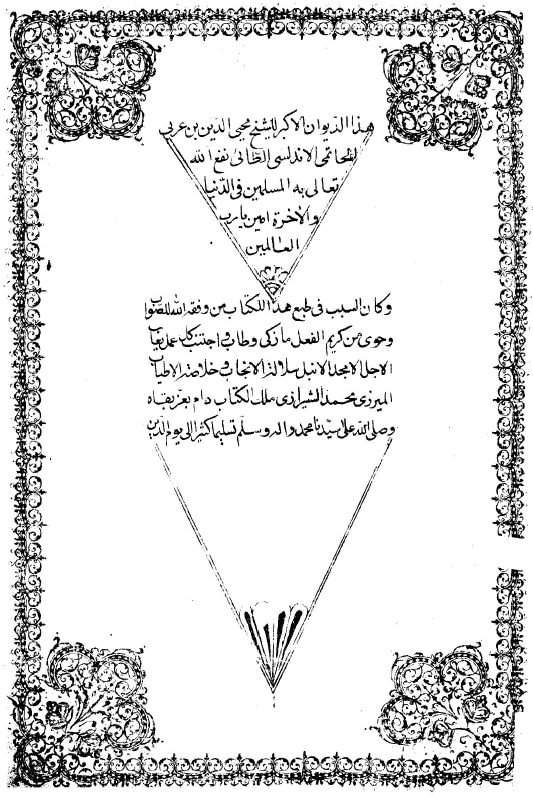 هذا الديوان الاكبر للشيخ محيى الدين بن عربى
الحاتمى الاندلسى الطائى نفع الله
تعالى به المسلمين فى الدنيا
والاخرة امين يارب
العالمين
وكان السبب فى طبع هذا الكتاب من وفقه الله للصواب
وحوى من كريم الفعل ما زكى وطاب واجتنب كل عمل يعاب
الاجل الامجد الانبل سلالة الانجاب وخلاصة الاطياب
الميرزى محمد الشيرازى ملك الكتاب دام بعز بقاه
وصلى الله على سيدنا محمد واله وسلم تسليما كثيرا الى يوم الدين